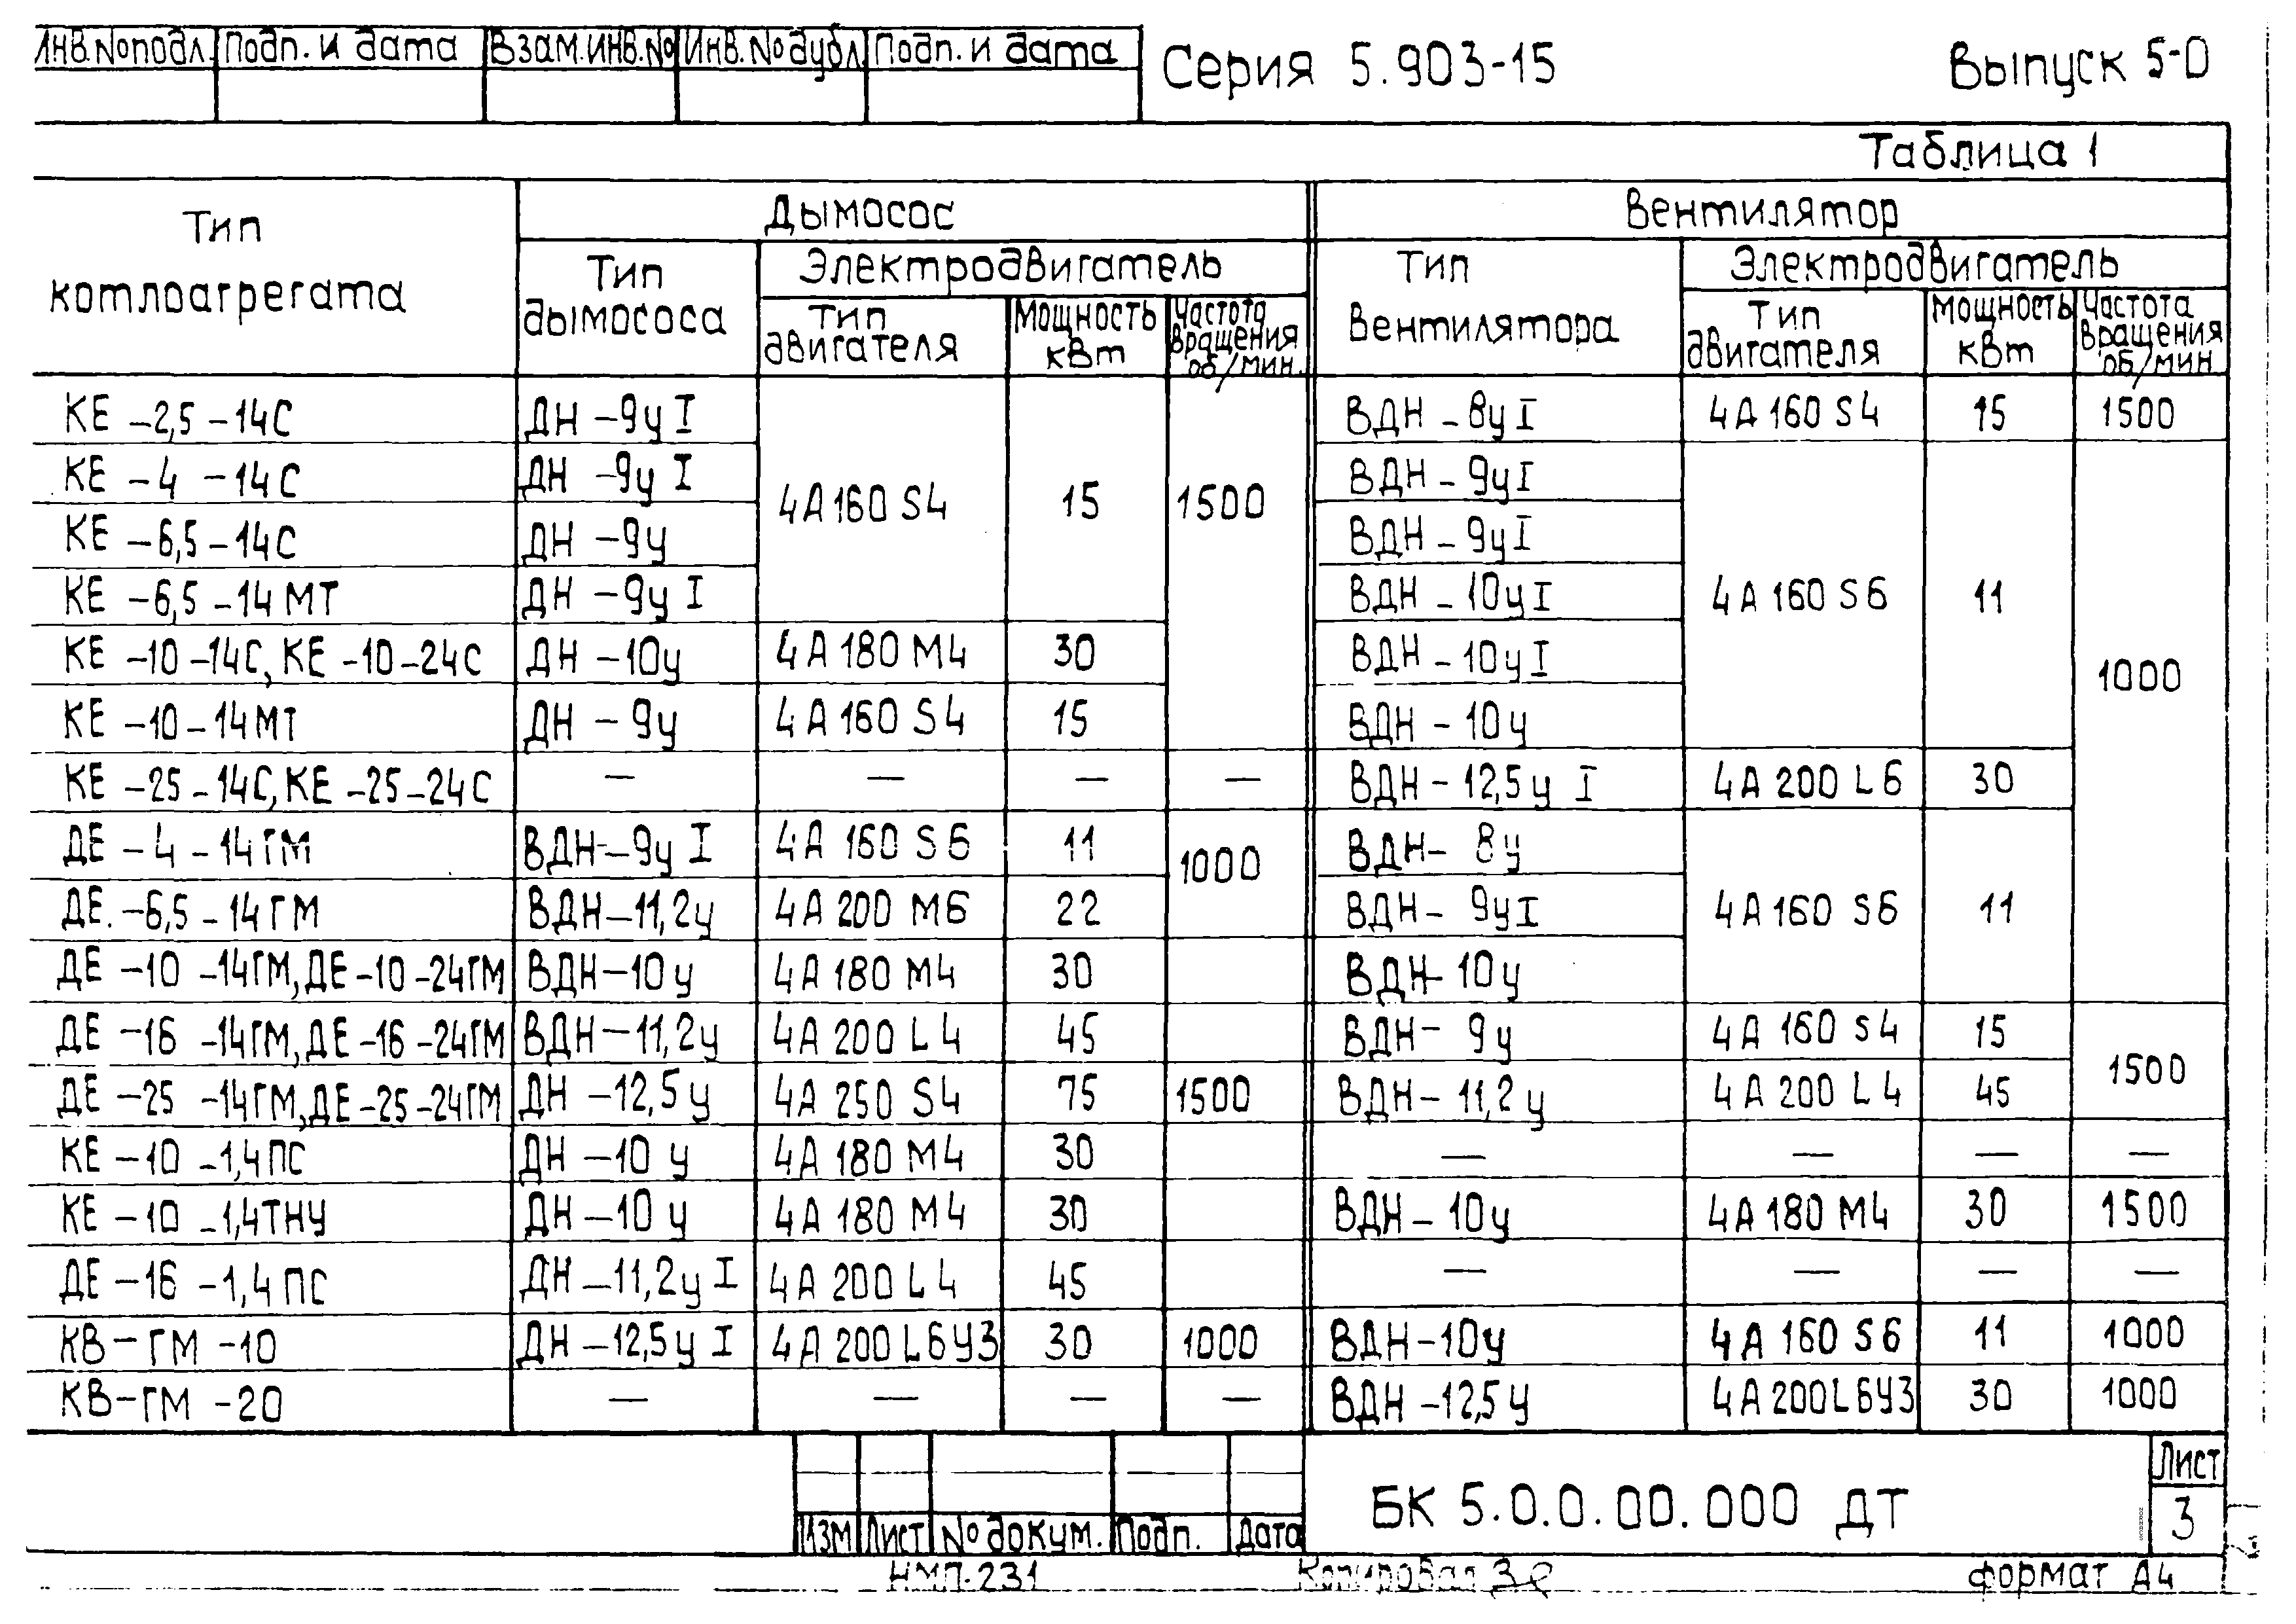 Инв.№ подл. Подп. и дата Взам.инв.№ Инв.№ дубл. Подп. и дата
Серия 5.903-15 Выпуск 5-0
Таблица 1
Тип котлоагрегата Дымосос Вентилятор
Тип дымососа Электродвигатель Тип вентилятора Электродвигатель
Тип двигателя Мощность кВт Частота вращения об/мин. Тип двигателя Мощность кВт Частота вращения об/мин
КЕ -2,5-14С ДН -9у I 4А160 S4 15 1500 ВДН -8у I 4А160 S4 15 1500
КЕ -4 -14С ДН -9у I ВДН -9у I 4А160 S6 11 1000
КЕ -6,5-14С ДН -9у ВДН -9у I
КЕ -6,5-14 МТ ДН -9у I ВДН -10у I
КЕ -10-14С, КЕ -10-24С ДН -10у 4А180 М4 30 ВДН -10у I
КЕ -10-14МТ ДН -9у 4А160 S4 15 ВДН -10у
КЕ -25-14С, КЕ -25-24С — — — — ВДН -12,5у I 4А 200 L6 30
ДЕ -4 -14ГМ ВДН -9у I 4А 160 S6 11 1000 ВДН- 8у 4А160 S6 11
ДЕ. -6,5-14ГМ ВДН-11,2у 4А200 М6 22 ВДН- 9у I
ДЕ -10 -14ГМ, ДЕ-10-24ГМ ВДН-10у 4А180 М4 30 ВДН-10у
ДЕ -16 -14ГМ, ДЕ-16-24ГМ ВДН-11,2у 4А200 L4 45 ВДН- 9у 4А 160 S4 15 1500
ДЕ -25 -14ГМ, ДЕ-25-24ГМ ДН -12,5у 4А 250 S4 75 1500 ВДН-11,2у 4А 200 L4 45
КЕ -10 -1,4ПС ДН -10 у 4А180 М4 30 — — — —
КЕ -10 -1,4ТНУ ДН -10 у 4А180 М4 30 ВДН -10у 4А180 М4 30 1500
ДЕ -16 -1,4 ПС ДН -11,2у I 4А 200 L4 45 — — — —
КВ-ГМ -10 ДН -12,5у I 4А 200 L6У3 30 1000 ВДН-10у 4А 160 S6 11 1000
КВ-ГМ -20 — — — — ВДН -12,5у 4А200L6У3 30 1000
Изм Лист № докум. Подп. Дата
БК 5.0.0.00.000 ДТ
Лист
3
НМП-231 Копировал формат А4